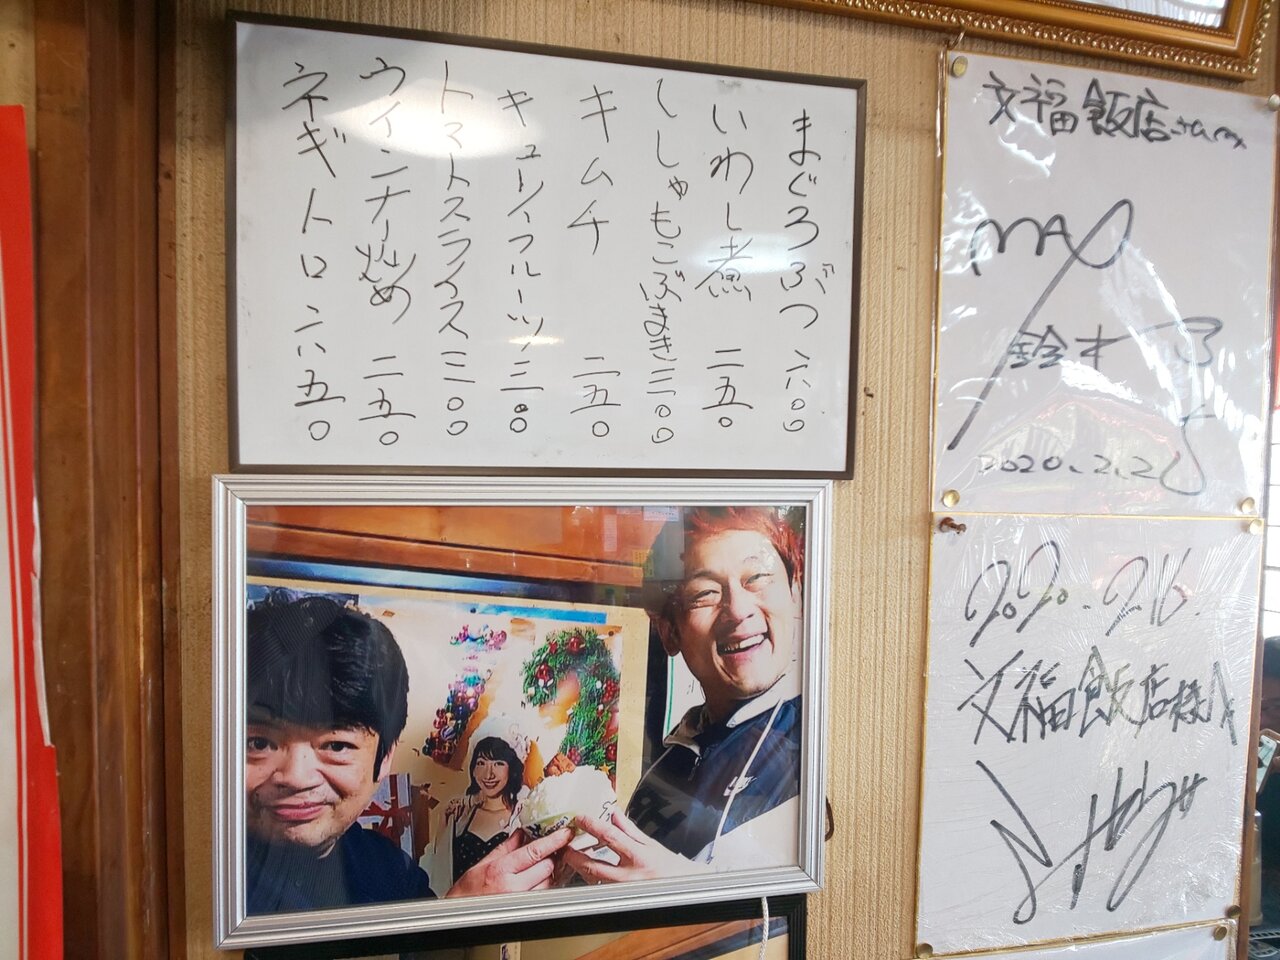 まぐろぶつ 六〇〇
いわし煮 二五〇
ししゃもこぶまき 三〇〇
キムチ 二五〇
キューリ、フルーツ、三一〇
トマトスライス 三〇〇
ウインナー炒め 二五〇
ネギトロ 六五〇
文福飯店さん江
MAX
鈴木
2020.2.26
2020.2.16.
文福飯店様へ